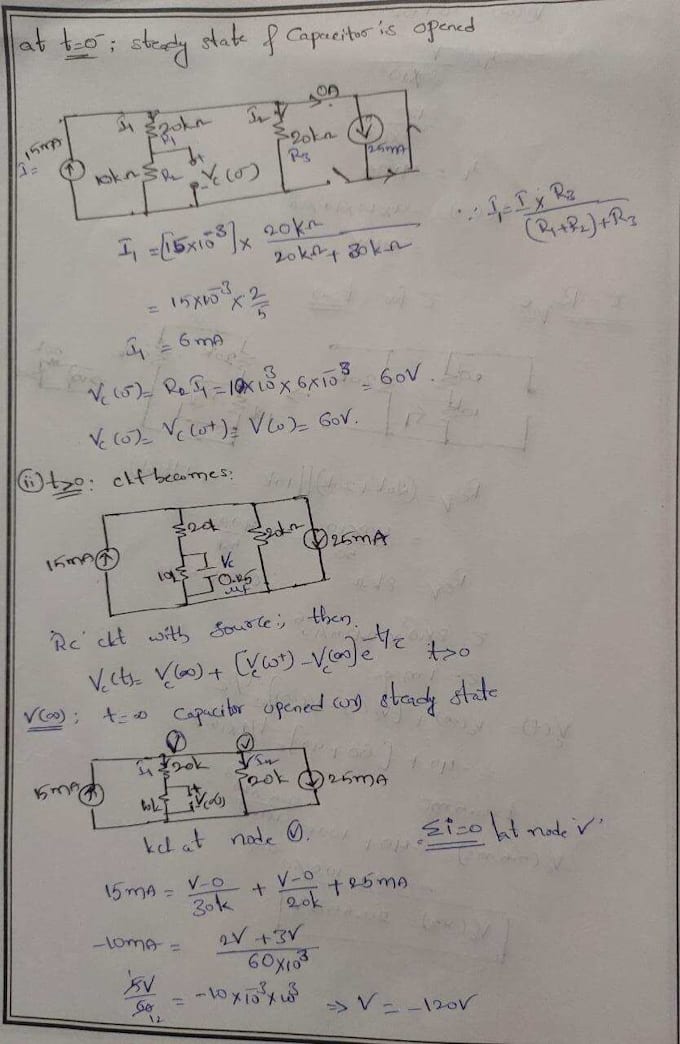 at t=0⁻; steady state & Capacitor is opened
0A
15mA
I=
I₁
20kΩ
R₁
I₂
20kΩ
R₃
25mA
10kΩ
R₂
+
-
Vc(0⁻)
I₁ = [15×10⁻³] × 20kΩ / 20kΩ + 30kΩ
∴ I₁ = I × R₃ / (R₁+R₂)+R₃
= 15×10⁻³ × 2/5
I₁ = 6mA
Vc(0⁻) = R₂ I₁ = 10×10³ × 6×10⁻³ = 60V.
Vc(0⁻) = Vc(0⁺) = V(0) = 60V.
(ii) t>0: ckt becomes:
15mA
20k
20kΩ
25mA
10k
Vc
0.25
μf
'Rc' ckt with source; then.
Vc(t) = Vc(∞) + [Vc(0⁺) - Vc(∞)] e^-t/τ t>0
V(∞); t=∞ Capacitor opened (or) steady state
V
V
15mA
I₁
20k
I₂
20k
25mA
10k
+
-
V(∞)
kcl at node V.
Σi=0 'at node V'
15mA = V-0/30k + V-0/20k + 25mA
-10mA = 2V+3V / 60×10³
5V/60 12 = -10×10⁻³×10³ ⇒ V = -120V